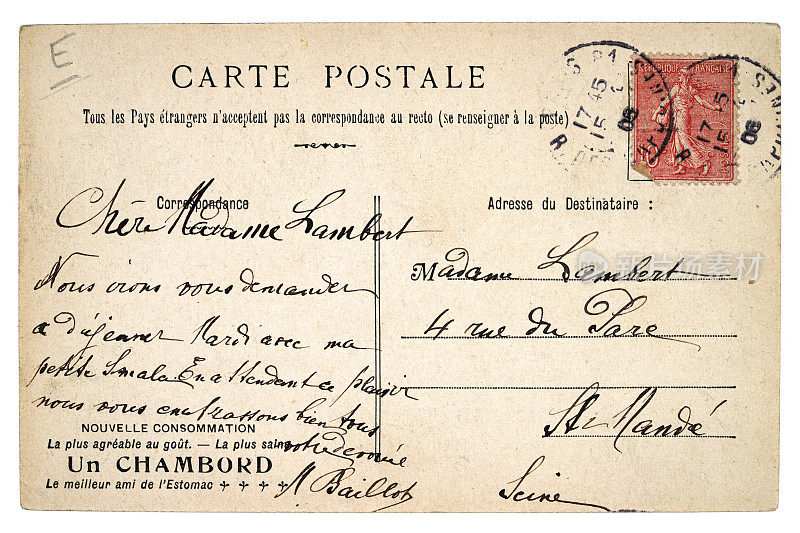 E
CARTE POSTALE
Tous les Pays étrangers n'acceptent pas la correspondance au recto (se renseigner à la poste)
REPUBLIQUE FRANÇAISE
17 45
15 2
08
17 5
15
08
Correspondance
Chère Madame Lambert
Nous irons vous demander
a déjeuner Mardi avec ma
petite Smala En attendant ce plaisir
nous vous embrassons bien tous
votre devouée
M Baillot
NOUVELLE CONSOMMATION
La plus agréable au goût. — La plus saine
Un CHAMBORD
Le meilleur ami de l'Estomac
Adresse du Destinataire :
Madame Lambert
4 rue du Parc
St Mandé
Seine